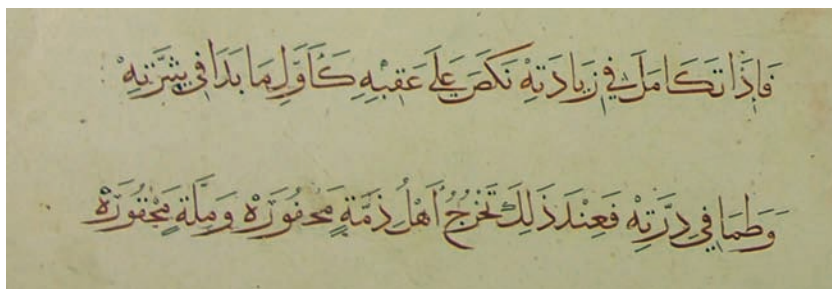 فَإِذَا تَكَامَلَ فِي زِيَادَتِهْ نَكَصَ عَلَى عَقِبِهِ كَأَوَّلِ مَا بَدَا فِي شِرَّتِهْ
وَطَمَا فِي دِرَّتِهْ فَعِنْدَ ذَلِكَ تَخْرُجُ أَهْلُ ذِمَّةٍ مَخْفُورَهْ وَمِلَّةٍ مَحْقُورَهْ